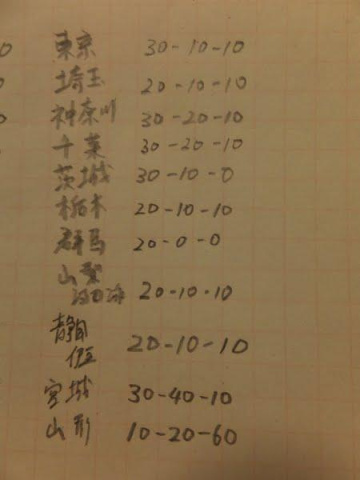 東京 30-10-10
埼玉 20-10-10
神奈川 30-20-10
千葉 30-20-10
茨城 30-10-0
栃木 20-10-10
群馬 20-0-0
山梨
20-10-10
静岡
伊豆
20-10-10
宮城 30-40-10
山形 10-20-60